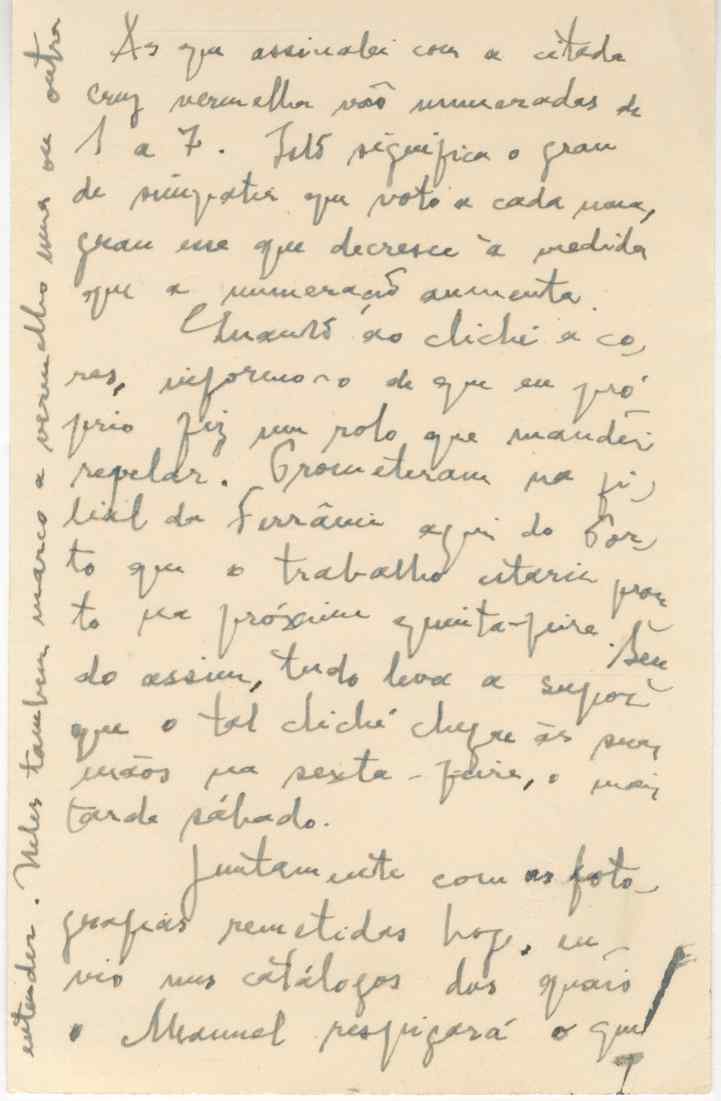 As que assinalei com a citada
cruz vermelha vão numeradas de
1 a 7. Isto significa o grau
de simpatia que voto a cada uma,
grau esse que decresce à medida
que a numeração aumenta.
Quanto ao cliché a co-
res, informo-o de que eu pró-
prio fiz um rolo que mandei
revelar. Prometeram na fi-
lial da Ferrânia aqui do Por-
to que o trabalho estaria pron-
to na próxima quinta-feira. Sen-
do assim, tudo leva a supor
que o tal cliché chegue às suas
mãos na sexta-feira, o mais
tarde sábado.
Juntamente com as foto-
grafias remetidas hoje, en-
vio uns catálogos dos quais
o Manuel respigará o que
entender. Neles também marco a vermelho uma ou outra